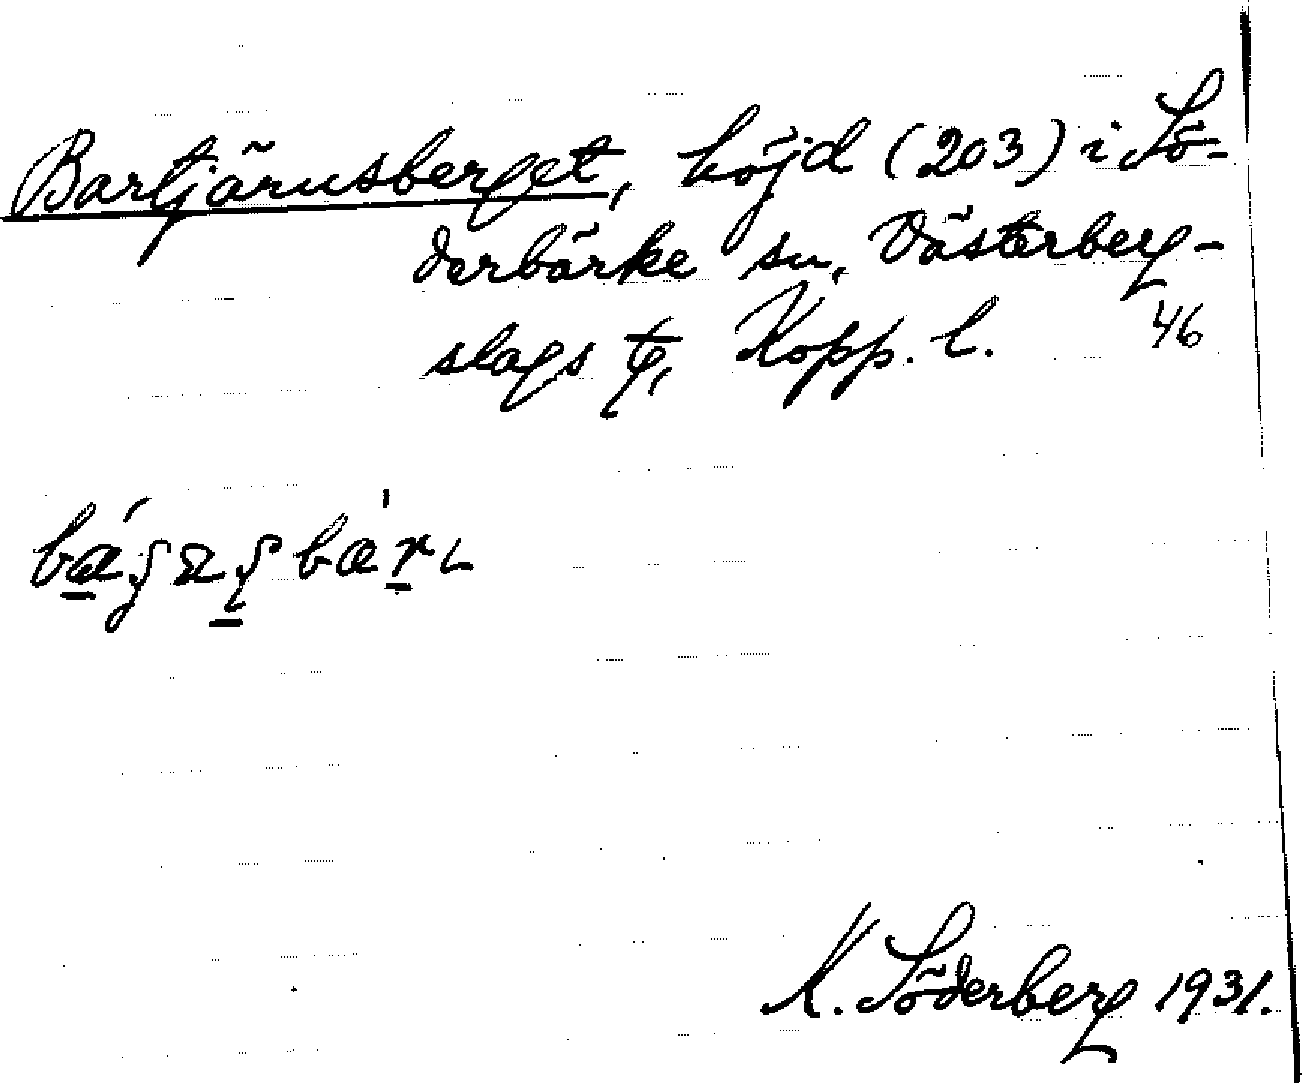 Bartjärnsberget, höjd (203) i Sö-
derbärke sn, Västerberg-
slags tg, Kopp. l. 46
K. Söderberg 1931.